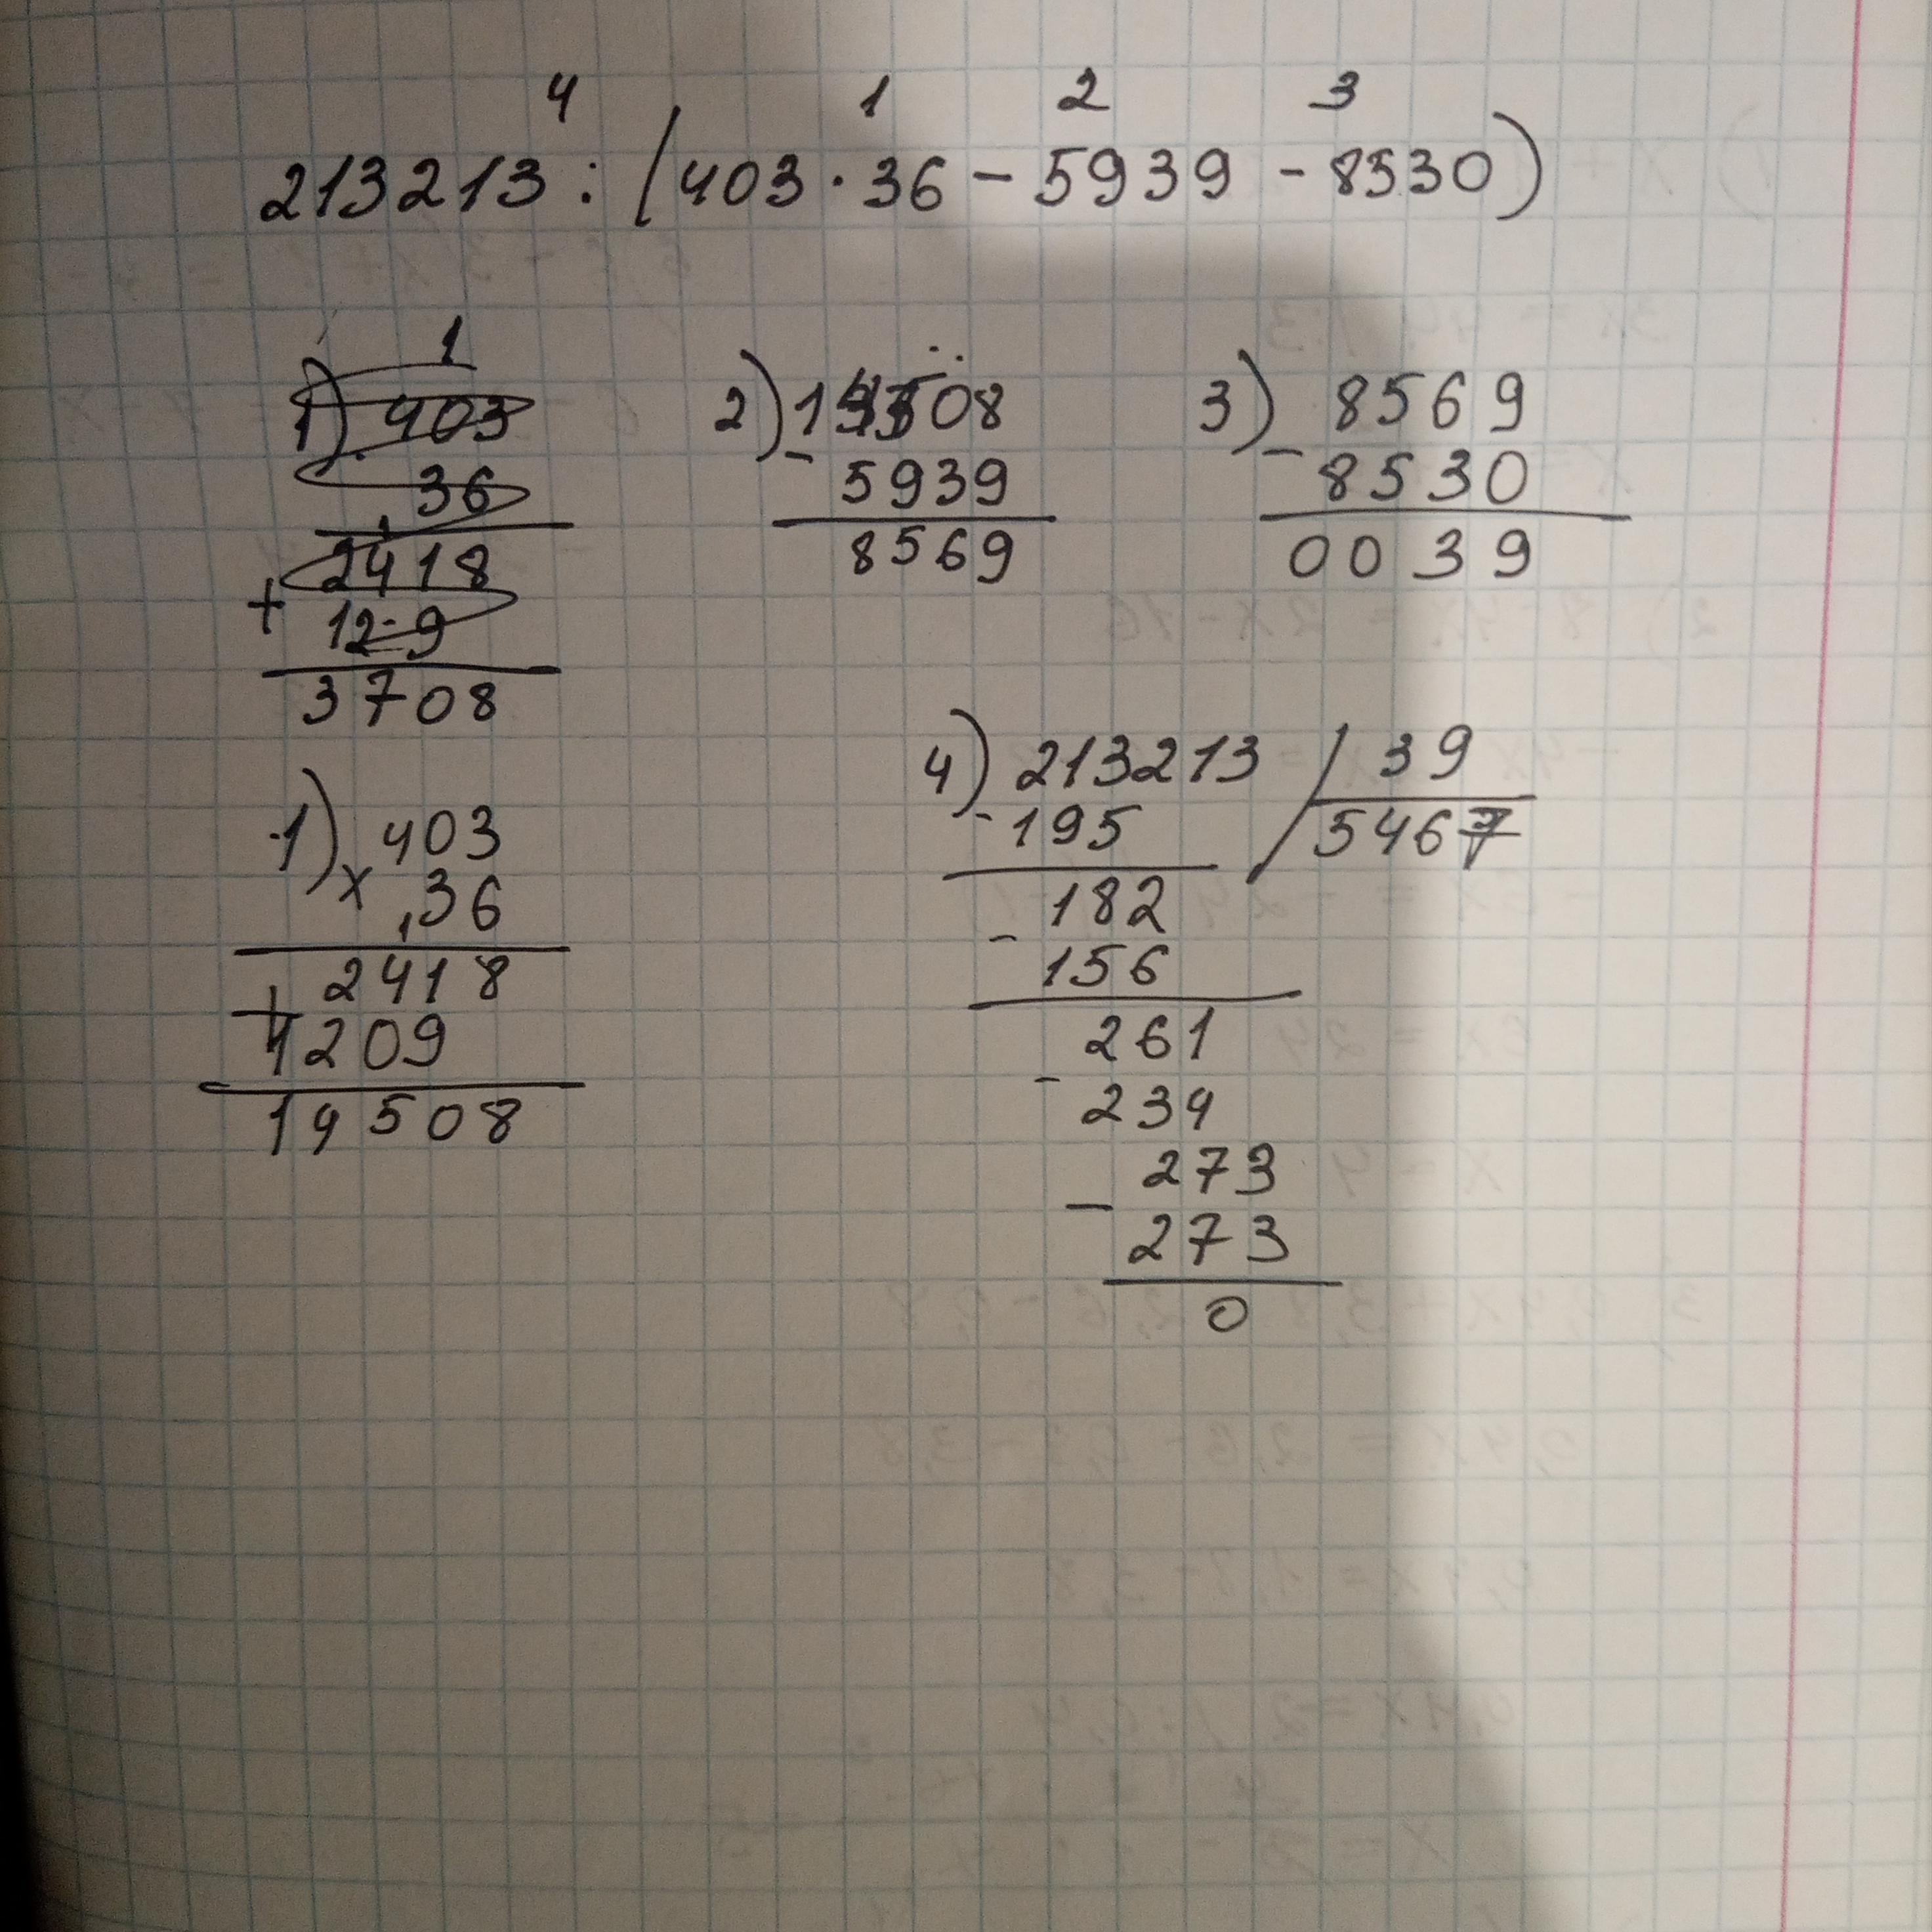 4 1 2 3
213213 : (403 · 36 - 5939 - 8530)
1
1) 403
36
2418
+ 12-9
3708
1) 403
× 36
2418
+ 1209
14508
2) 14508
- 5939
8569
3) 8569
- 8530
0039
4) 213213 | 39
- 195 5467
182
- 156
261
- 234
273
- 273
0